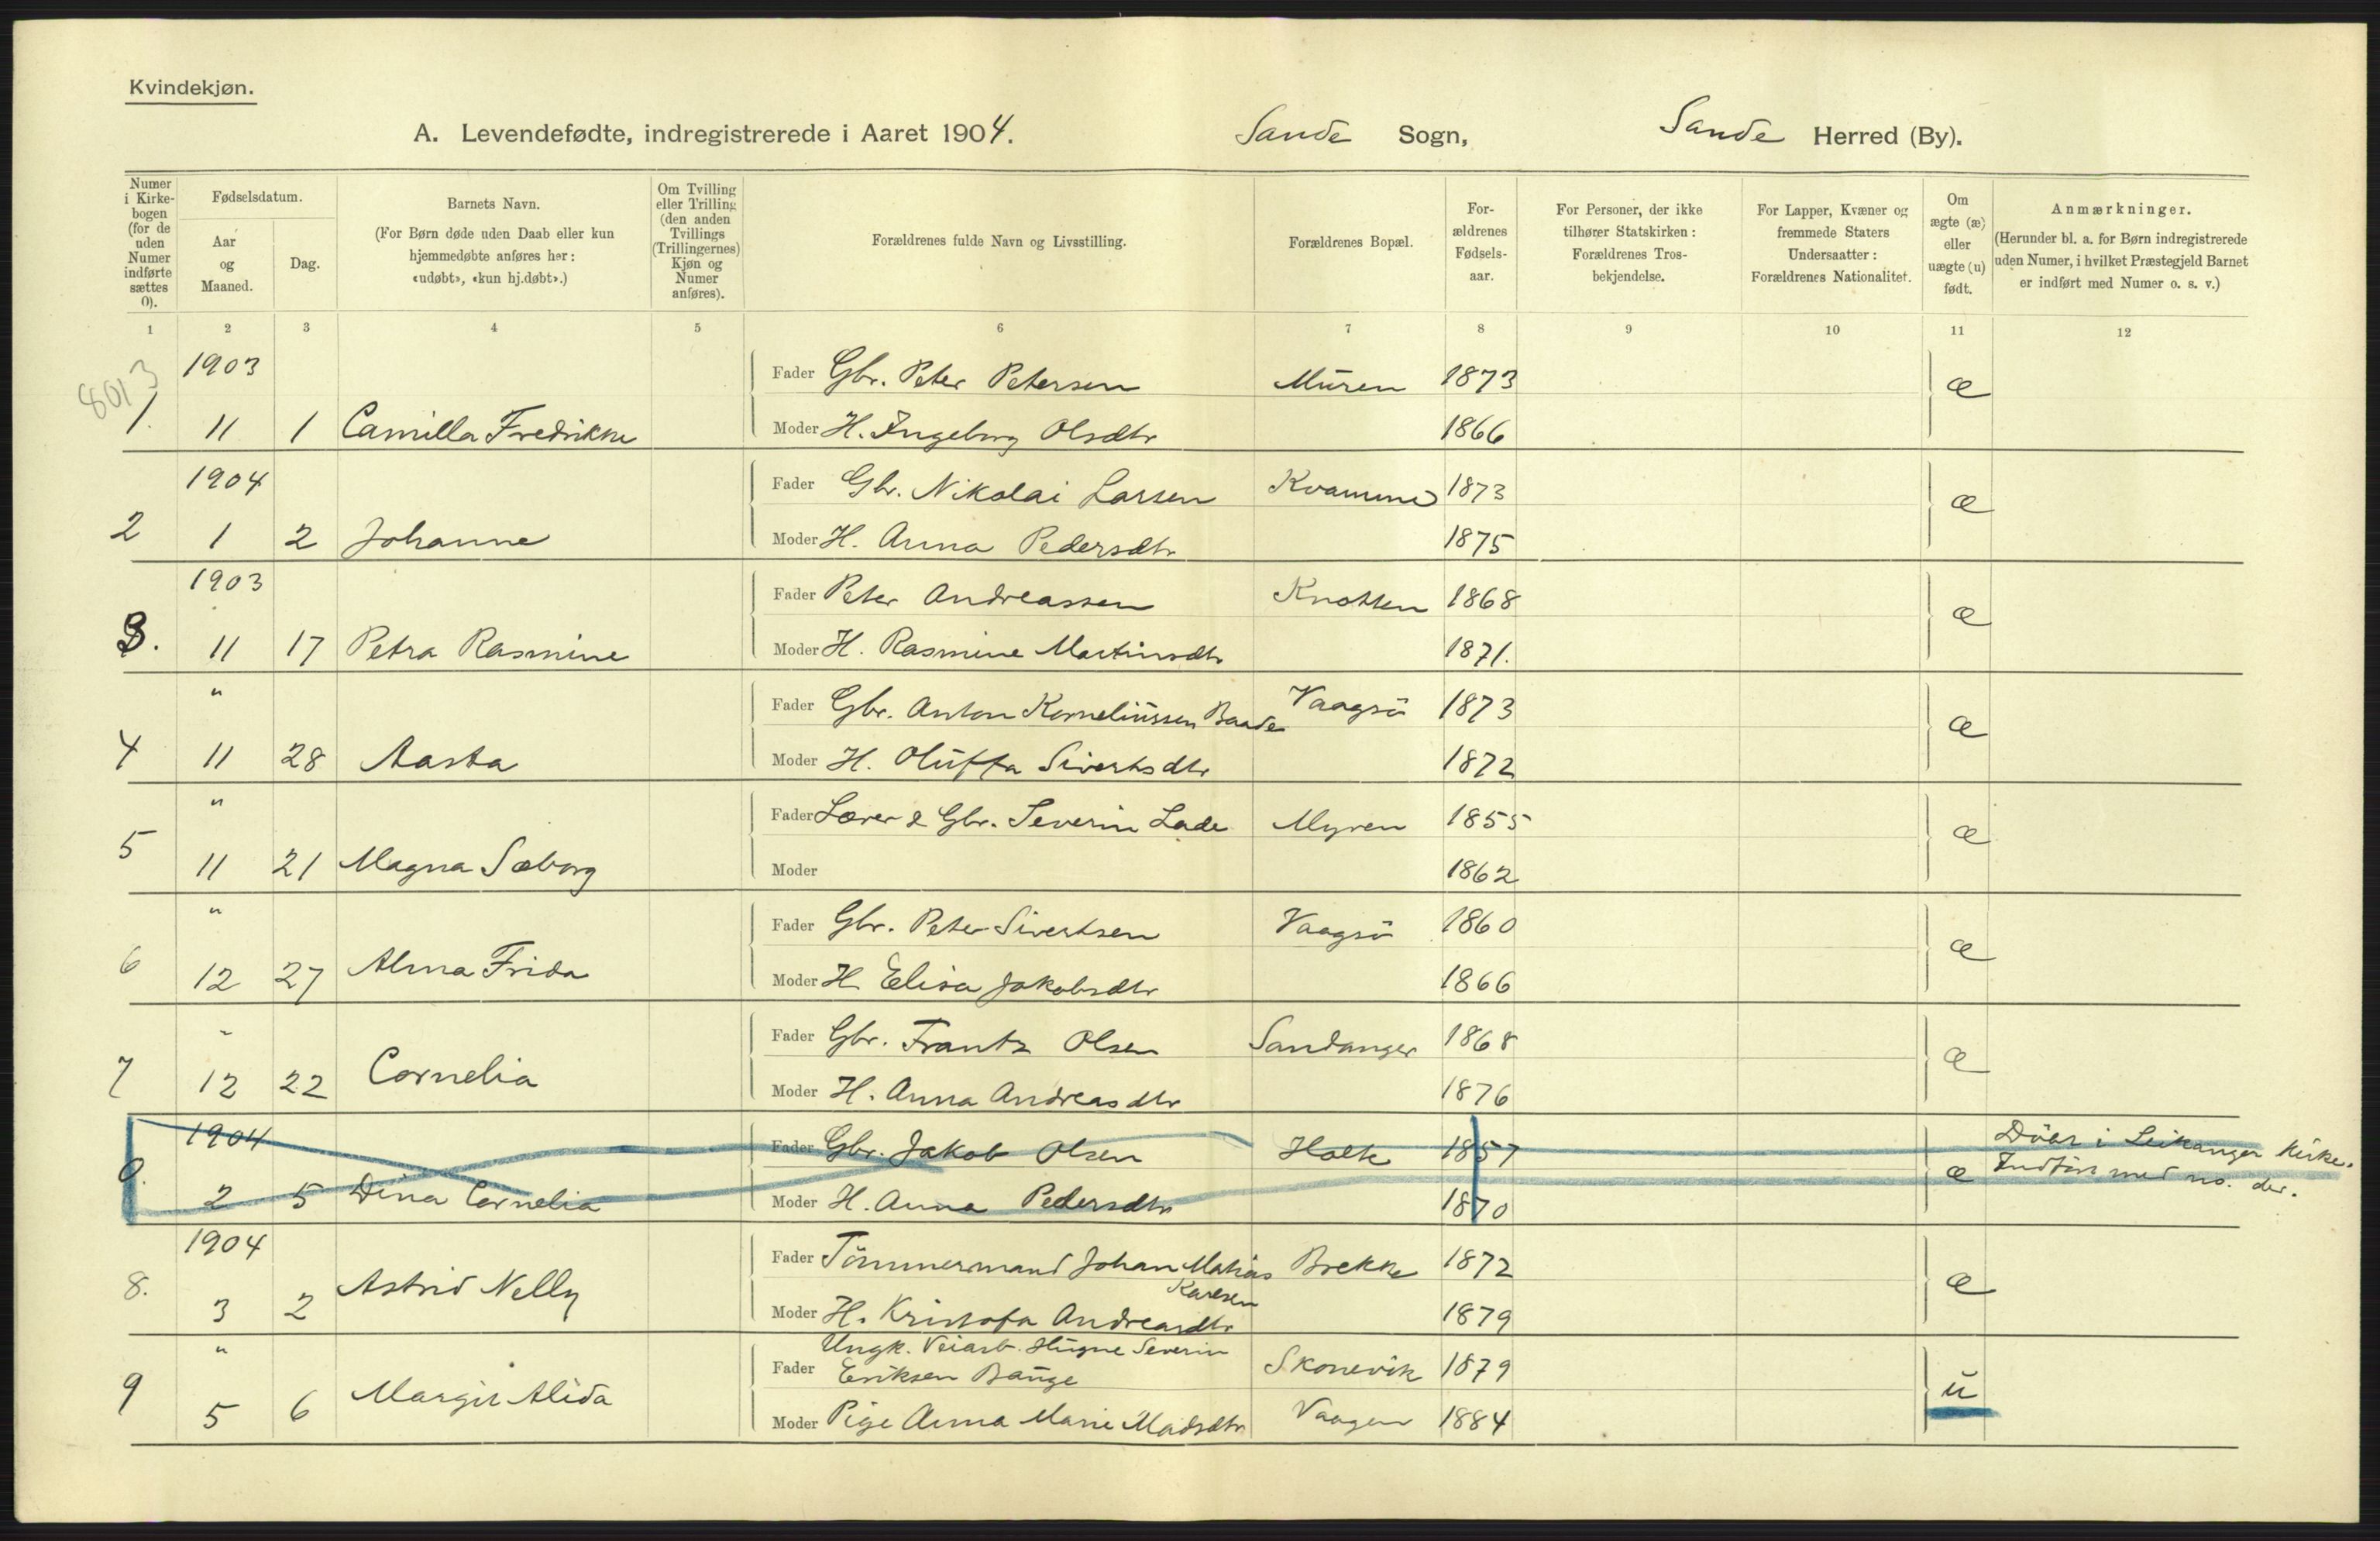 Kvindekjøn.
A. Levendefødte, indregistrerede i Aaret 1904. Sande Sogn, Sande Herred (By).
Numer i Kirkebogen (for de uden Numer indførte sættes 0).
Fødselsdatum.
Aar og Maaned.
Dag.
Barnets Navn.
(For Børn døde uden Daab eller kun hjemmedøbte anføres her: «udøbt», «kun hj.døbt».)
Om Tvilling eller Trilling (den anden Tvillings (Trillingernes) Kjøn og Numer anføres).
Forældrenes fulde Navn og Livsstilling.
Forældrenes Bopæl.
For-ældrenes Fødsels-aar.
For Personer, der ikke tilhører Statskirken: Forældrenes Tros-bekjendelse.
For Lapper, Kvæner og fremmede Staters Undersaatter: Forældrenes Nationalitet.
Om ægte (æ) eller uægte (u) født.
Anmærkninger.
(Herunder bl. a. for Børn indregistrerede uden Numer, i hvilket Præstegjeld Barnet er indført med Numer o. s. v.)
1 2 3 4 5 6 7 8 9 10 11 12
8013
1903 Fader Gbr. Peter Petersen Muren 1873 æ
1. 11 1 Camilla Fredrikke Moder H. Ingeborg Olsdtr 1866
1904 Fader Gbr. Nikolai Larsen Kvamme 1873 æ
2 1 2 Johanne Moder H. Anna Pedersdtr 1875
1903 Fader Peter Andreassen Knotten 1868 æ
3. 11 17 Petra Rasmine Moder H. Rasmine Martinsdtr 1871.
" Fader Gbr. Anton Korneliussen Baade Vaagsö 1873 æ
4 11 28 Aasta Moder H. Oluffa Sivertsdtr 1872
" Fader Lærer & Gbr. Severin Lade Myren 1855 æ
5 11 21 Magna Sæborg Moder 1862
" Fader Gbr. Peter Sivertsen Vaagsö 1860 æ
6 12 27 Alma Frida Moder H Elisa Jakobsdtr 1866
" Fader Gbr. Frantz Olsen Sandanger 1868 æ
7 12 22 Cornelia Moder H. Anna Andreasdtr 1876
1904 Fader Gbr. Jakob Olsen 1857 æ Döbt i Leikanger Kirke.
0. 2 5 Dina Cornelia Moder H. Anna Pedersdtr 1870 Indfört med no. der.
1904 Fader Tömmermand Johan Matias Karlsen Brekke 1872 æ
8. 3 2 Astrid Nelly Moder H. Kristofa Andreasdtr 1879
" Fader Ungk. Veiarb. Severin
Eriksen Bauge Skonevik 1879 u
9 5 6 Margit Alida Moder Pige Anna Marie Madsdtr Vaagen 1884